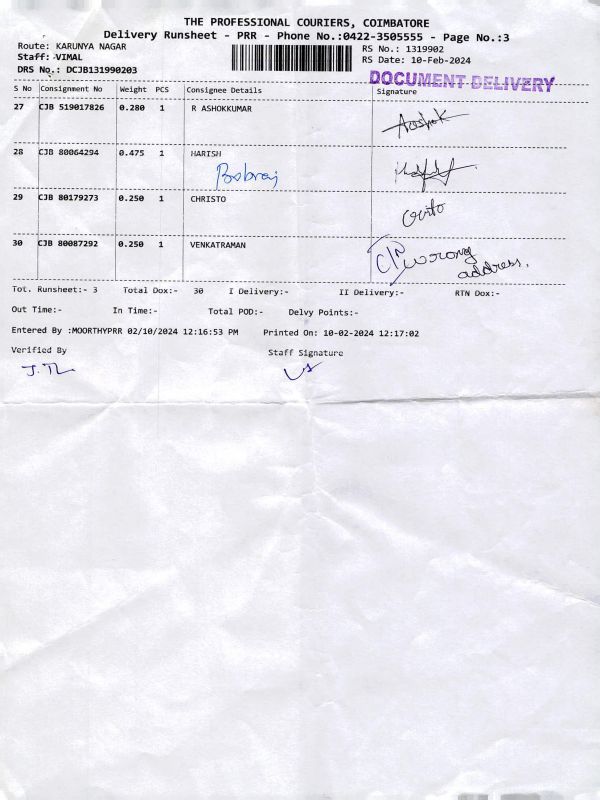 THE PROFESSIONAL COURIERS, COIMBATORE
Delivery Runsheet - PRR - Phone No.:0422-3505555 - Page No.:3
Route: KARUNYA NAGAR RS No.: 1319902
Staff: VIMAL RS Date: 10-Feb-2024
DRS No.: DCJB131990203
DOCUMENT DELIVERY
S No Consignment No Weight PCS Consignee Details Signature
27 CJB 519017826 0.280 1 R ASHOKKUMAR
Ashok
28 CJB 80064294 0.475 1 HARISH
29 CJB 80179273 0.250 1 CHRISTO
30 CJB 80087292 0.250 1 VENKATRAMAN
wrong
address.
Tot. Runsheet:- 3 Total Dox:- 30 I Delivery:- II Delivery:- RTN Dox:-
Out Time:- In Time:- Total POD:- Delvy Points:-
Entered By :MOORTHYPRR 02/10/2024 12:16:53 PM Printed On: 10-02-2024 12:17:02
Verified By Staff Signature